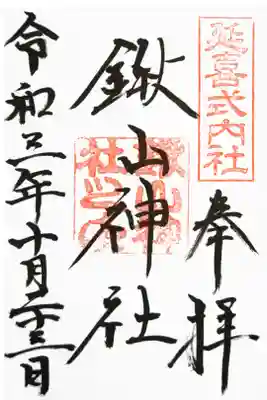 延喜式内社
奉拝
鍬山神社
令和三年十月二十三日